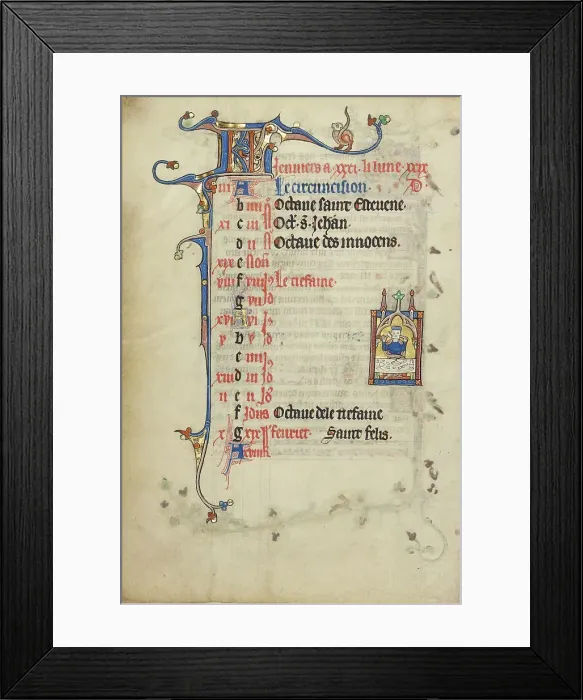 Jenuiers a xxxi. li lune. xxx
iii A Le circuncision. D.
b iiii Octaue saint Esteuene.
xi c iii Oct. s. Jehan.
d ii Octaue des innocens.
xix e Non
viii f viii Le tiefaine.
g vii id
xvi vi id
v b v id
c iiii id
xiii d iii id
ii e ii id
f Idus Octaue dele tiefaine
x g xix feurier. Saint felis.
A xviii